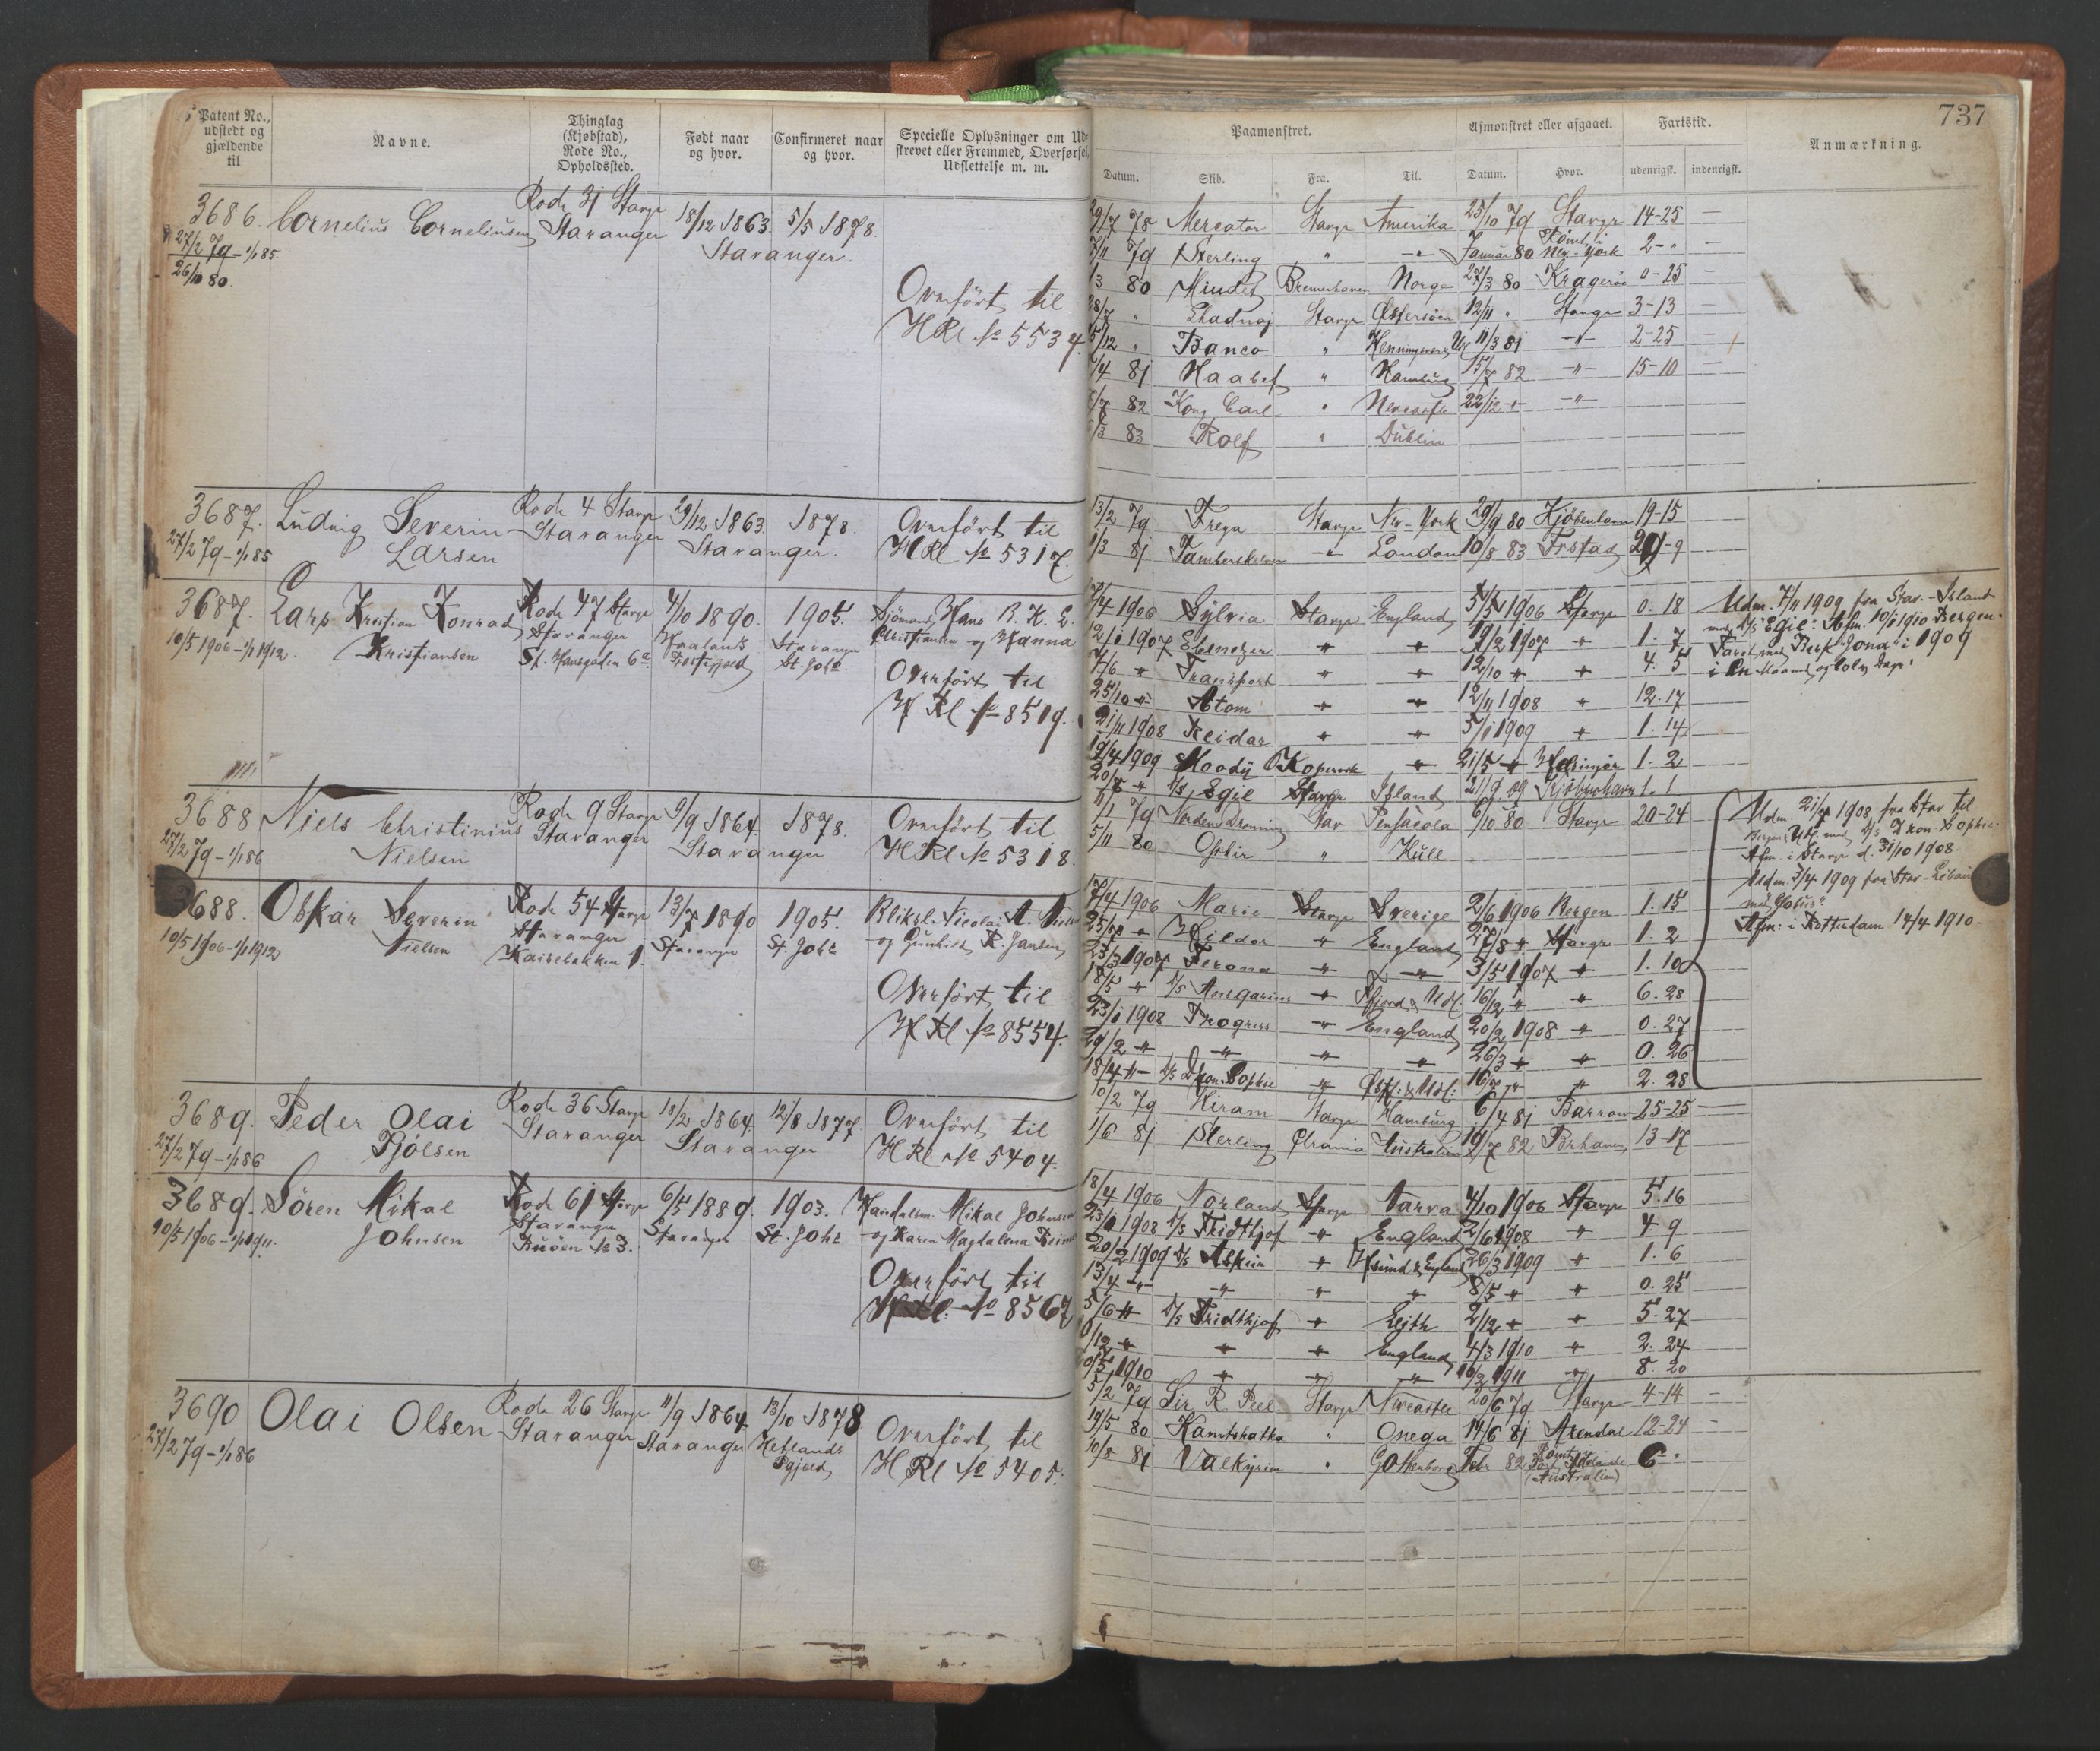 737
Patent No., udstedt og gjældende til
Navne.
Thinglag (Kjøbstad), Rode No., Opholdssted.
Født naar og hvor.
Confirmeret naar og hvor.
Specielle Oplysninger om Udskrevet eller Fremmed, Overførsel, Udslettelse m. m.
Paamønstret.
Afmønstret eller afgaaet.
Fartstid.
Anmærkning.
Datum. Skib. Fra. Til. Datum. Hvor. udenrigsk. indenrigsk.
3686. Cornelius Corneliusen Rode 31 Stavgr 18/12 1863. 5/5 1878.
27/2 79 - 1/1 85. Stavanger Stavanger.
26/10 80.
Overført til
HRl No 5534
29/7 78 Mercator Stavgr Amerika 25/10 79 Stavgr 14-25 —
7/11 79 Sterling " -"- Januar 80 Rømt i New-York 2- " —
1/3 80 Bremerhaven Norge 27/3 80 Kragerø 0-25 —
28/7 " Stavgr Østersøen 12/11 " Stavgr 3-13
5/12 " Banco " 11/3 81 -"- 2-25 —
/4 81 Haabet " Hamburg 15/7 82 -"- 15-10
/7 82 Kong Carl " 22/12 -"- -"-
/3 83 Rolf " Dublin
3687. Ludvig Severin Rode 4 Stavgr 29/12 1863 1878. Overført til
27/2 79 - 1/1 85 Larsen Stavanger Stavanger. HRl No 5317.
13/2 79 Freya Stavgr New-York 29/9 80 Kjøbenhavn 19-15
1/3 81 -"- London 10/8 83 29-9
3687. Lars Kristian Konrad Rode 47 Stavgr 4/10 1890. 1905. Sjömand Hans B. K. L.
10/5 1906 - 1/1 1912. Kristiansen Stavanger Stavanger Christiansen og Hanna
St. Hansgaden 6a St. Joh:
Overført til
H Rl No 8519.
17/4 1906 Sylvia Stavgr England 5/5 1906 Stavgr 0. 18
12/1 1907 Ebenezer " " 19/2 1907 " 1. 7
7/6 " Transport " " 12/10 " " 4. 5
25/10 " Atom " " 12/11 1908 " 12. 17
21/11 1908 Reidar " " 5/1 1909 " 1. 14
19/4 1909 Moody Kopervik " 21/5 " Helsingør 1. 2
20/8 " D/S Egil Stavgr Island 21/9 09 Kjøbenhavn 1. 1
Udm. 7/11 1909 fra Stav. - Island
med D/S "Egil". Afm. 10/1 1910 Bergen.
Faret med Bark "Jona" i 1909
i en Maaned og tolv Dage.
3688 Niels Christinius Rode 9 Stavgr 9/9 1864. 1878. Overført til
27/2 79 - 1/1 86 Nielsen Stavanger Stavanger HRl No 5318.
11/1 79 Nordens Dronning Stav Pensacola 6/10 80 Stavgr 20-24
5/11 80 " Hull
3688. Oskar Severin Rode 54 Stavgr 13/7 1890 1905. Bliksl. Nicolai A. Niels
10/5 1906 - 1/1 1912 Nielsen Stavanger Stavanger St. Joh: og Gunhild R. Jansen
1.
Overført til
H Rl No 8554.
17/4 1906 Marie Stavgr Sverige 2/6 1906 Bergen 1. 15
25/7 " Hildor " England 27/8 " Stavgr 1. 2
23/3 1907 Ferona " -"- 3/5 1907 " 1. 10
18/5 " D/S Ansgarius " 16/12 " " 6. 28
23/1 1908 Progress " England 20/2 1908 " 0. 27
29/2 " -"- " " 26/3 " " 0. 26
18/4 -"- D/S Dkon. Sophie " Østl: & Udl: 16/7 " " 2. 28
Udm. 21/7 1908 fra Stav til
Bergen & Udl. med D/S Dkon. Sophie.
Afm. i Stavgr d. 31/10 1908.
Udm. 3/4 1909 fra Stav - Libau
Afm: i Rotterdam 14/4 1910.
3689. Peder Olai Rode 36 Stavgr 18/2 1864 12/8 1877. Overført til
27/2 79 - 1/1 86 Tjølsen Stavanger Stavanger HRl No 5404.
10/2 79 Hiram Stavgr Hamburg 6/4 81 Barrow 25-25 —
1/6 81 Sterling Chrania Australien 19/7 82 13-17
3689. Sören Mikal Rode 61 Stavgr 6/5 1889. 1903. Handelsm. Mikal Johnsen
10/5 1906 - 1/1 1911. Johnsen Stavanger Stavanger St. Joh: og Karen Magdalena
No 3.
Overført til
H Rl. No 8567
18/4 1906 Norland Stavgr Narva 4/10 1906 Stavgr 5. 16
23/1 1908 D/S Fridthjof " England 2/6 1908 " 4. 9
20/2 1909 D/S " & England 26/3 1909 " 1. 6
13/4 -"- " " " 8/5 " " 0. 25
5/6 " D/S Fridthjof " Leith 2/12 " " 5. 27
/12 " " " England 4/3 1910 " 2. 24
/5 1910 " " " /2 1911 " 8. 20
3690 Olai Olsen Rode 26 Stavgr 11/9 1864. 13/10 1878 Overført til
27/2 79 - 1/1 86 Stavanger Stavanger Hetlands HRl No 5405.
5/2 79 Sir R. Peel Stavgr Newcastle 20/6 79 Stavgr 4-14 —
19/5 80 Kamtshatka " Onega 14/6 81 Arendal 12-24 —
10/8 81 Valkyrien " Gothenborg Febr 82 Rømt Port Adelaide 6- "
(Australien)